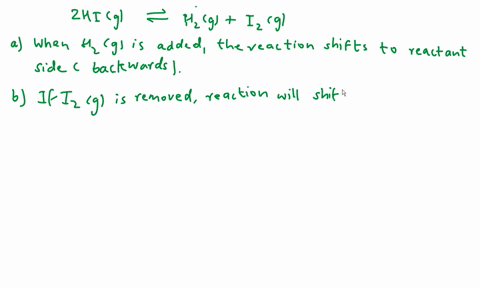 2HI(g) ⇌ H₂(g) + I₂(g)
a) When H₂(g) is added, the reaction shifts to reactant
side ( backwards).
b) If I₂(g) is removed, reaction will shif